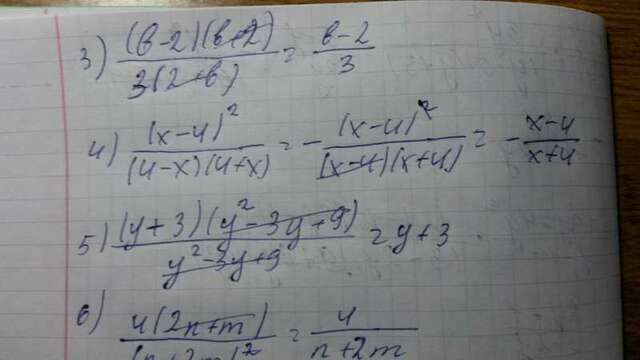 3) (в-2)(в+2) / 3(2+в) = в-2 / 3
4) (x-4)² / (4-x)(4+x) = - (x-4)² / (x-4)(x+4) = - x-4 / x+4
5) (y+3)(y²-3y+9) / y²-3y+9 = y+3
6) 4(2n+m) / (n+2m)² = 4 / n+2m